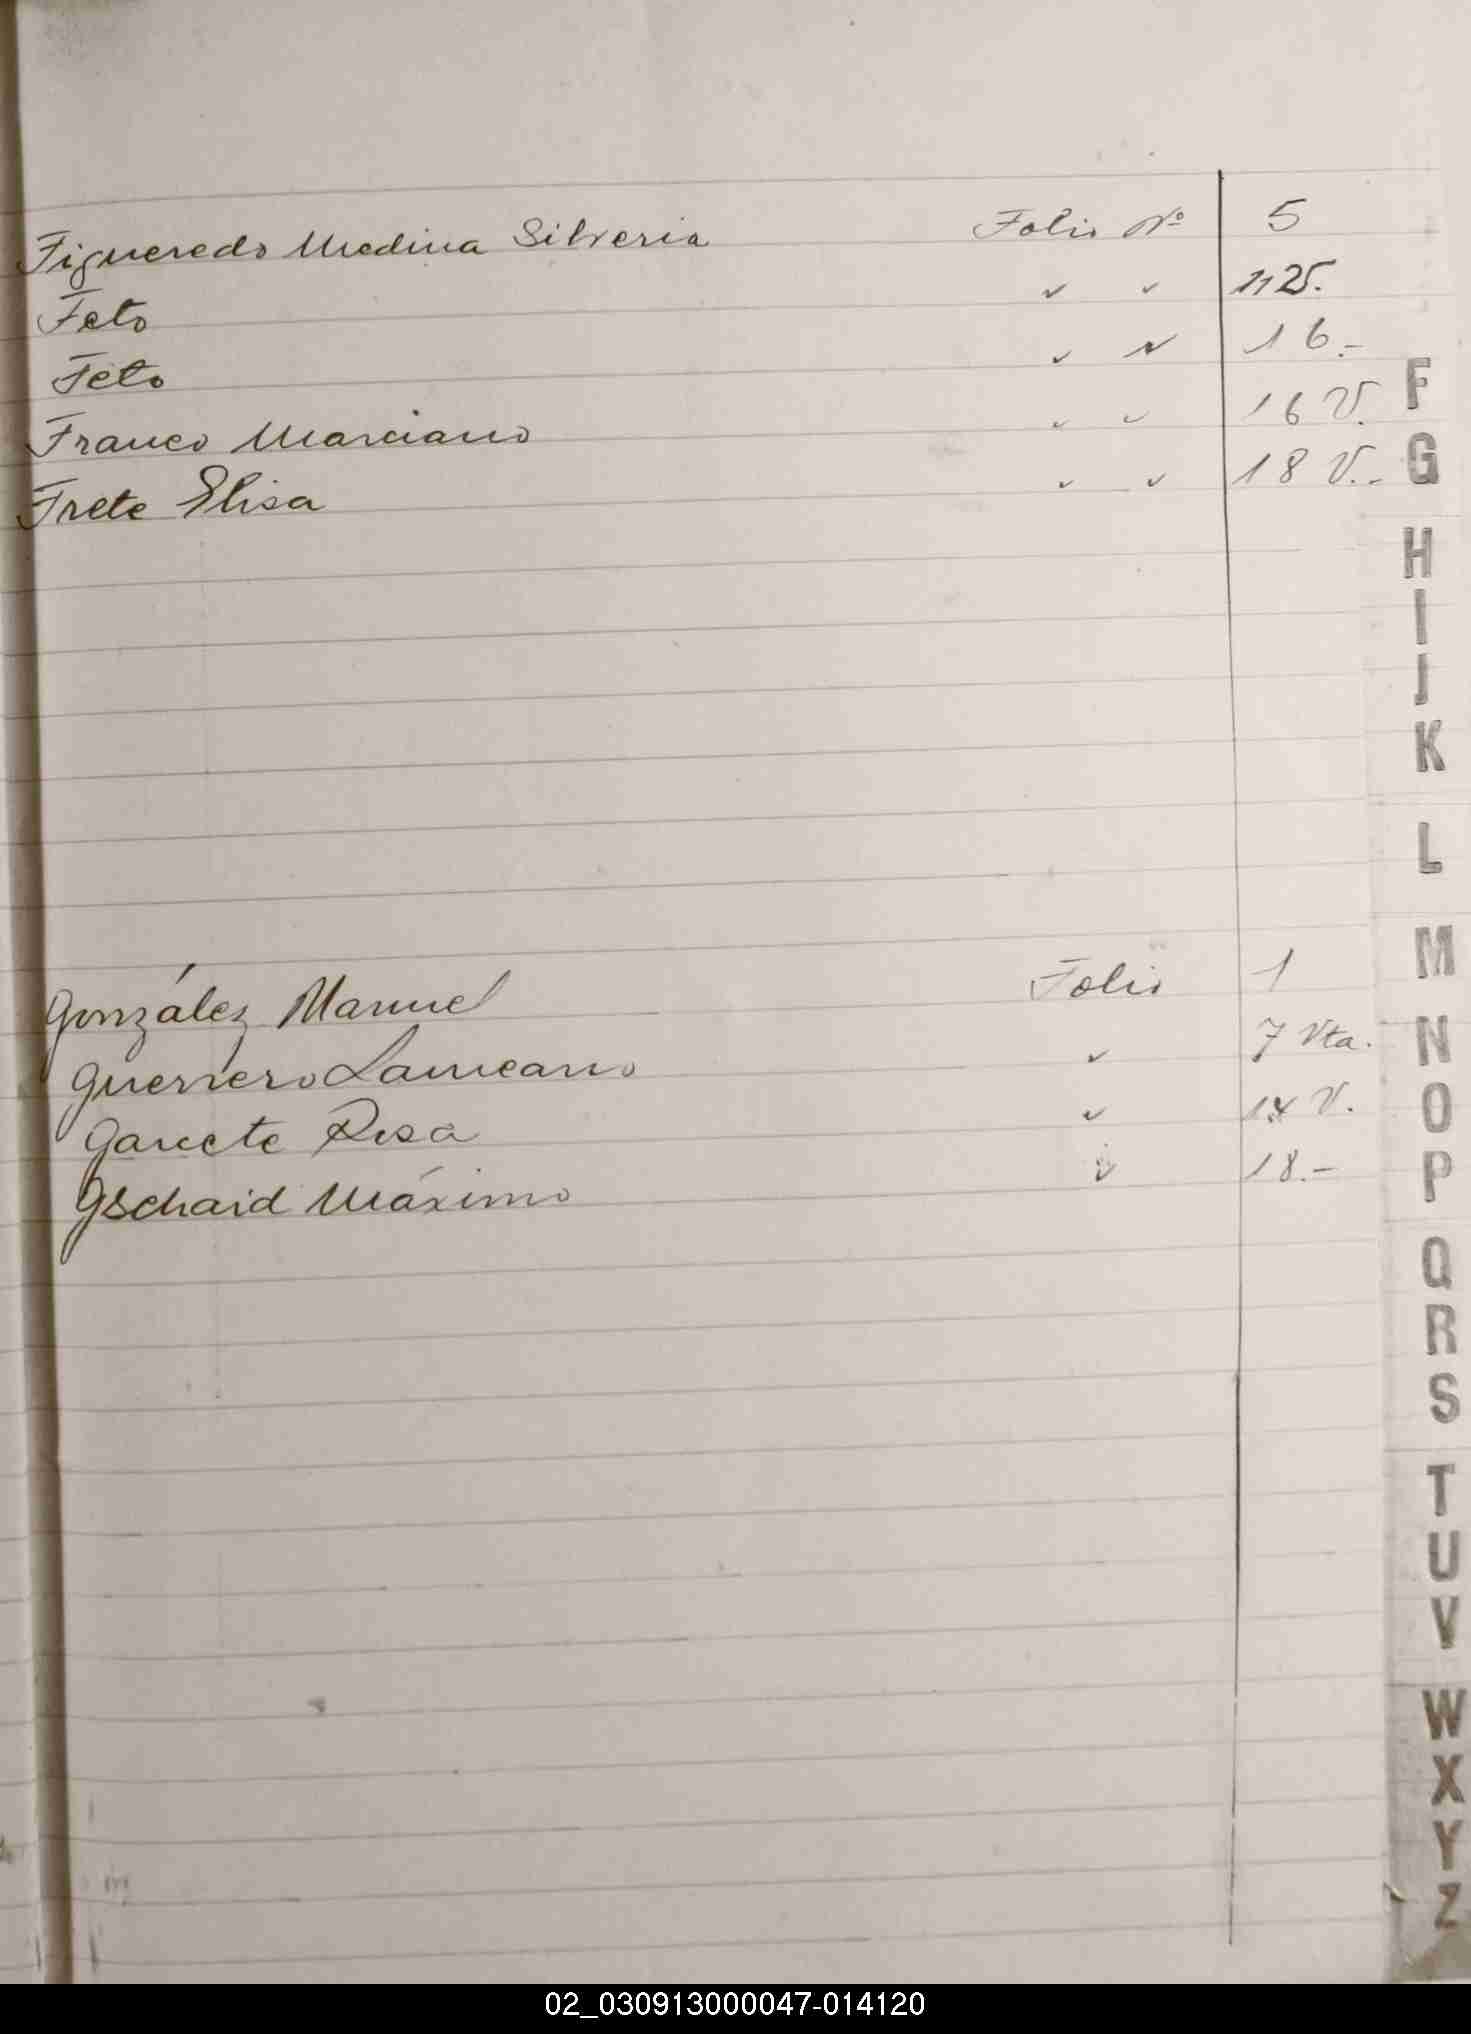 Figueredo Medina Silveria Folio Nº 5
Feto ✓ ✓ 11 V.
Feto ✓ ✓ 16.-
Franco Marciano ✓ ✓ 16 V.
Frete Elisa ✓ ✓ 18 V.-
González Manuel Folio 1
Guerrero Laureano ✓ 7 Vta.
Garcete Rosa ✓ V.
Gschaid Máximo ✓ 18.-
F
G
H
I
J
K
L
M
N
O
P
Q
R
S
T
U
V
W
X
Y
Z
02_030913000047-014120